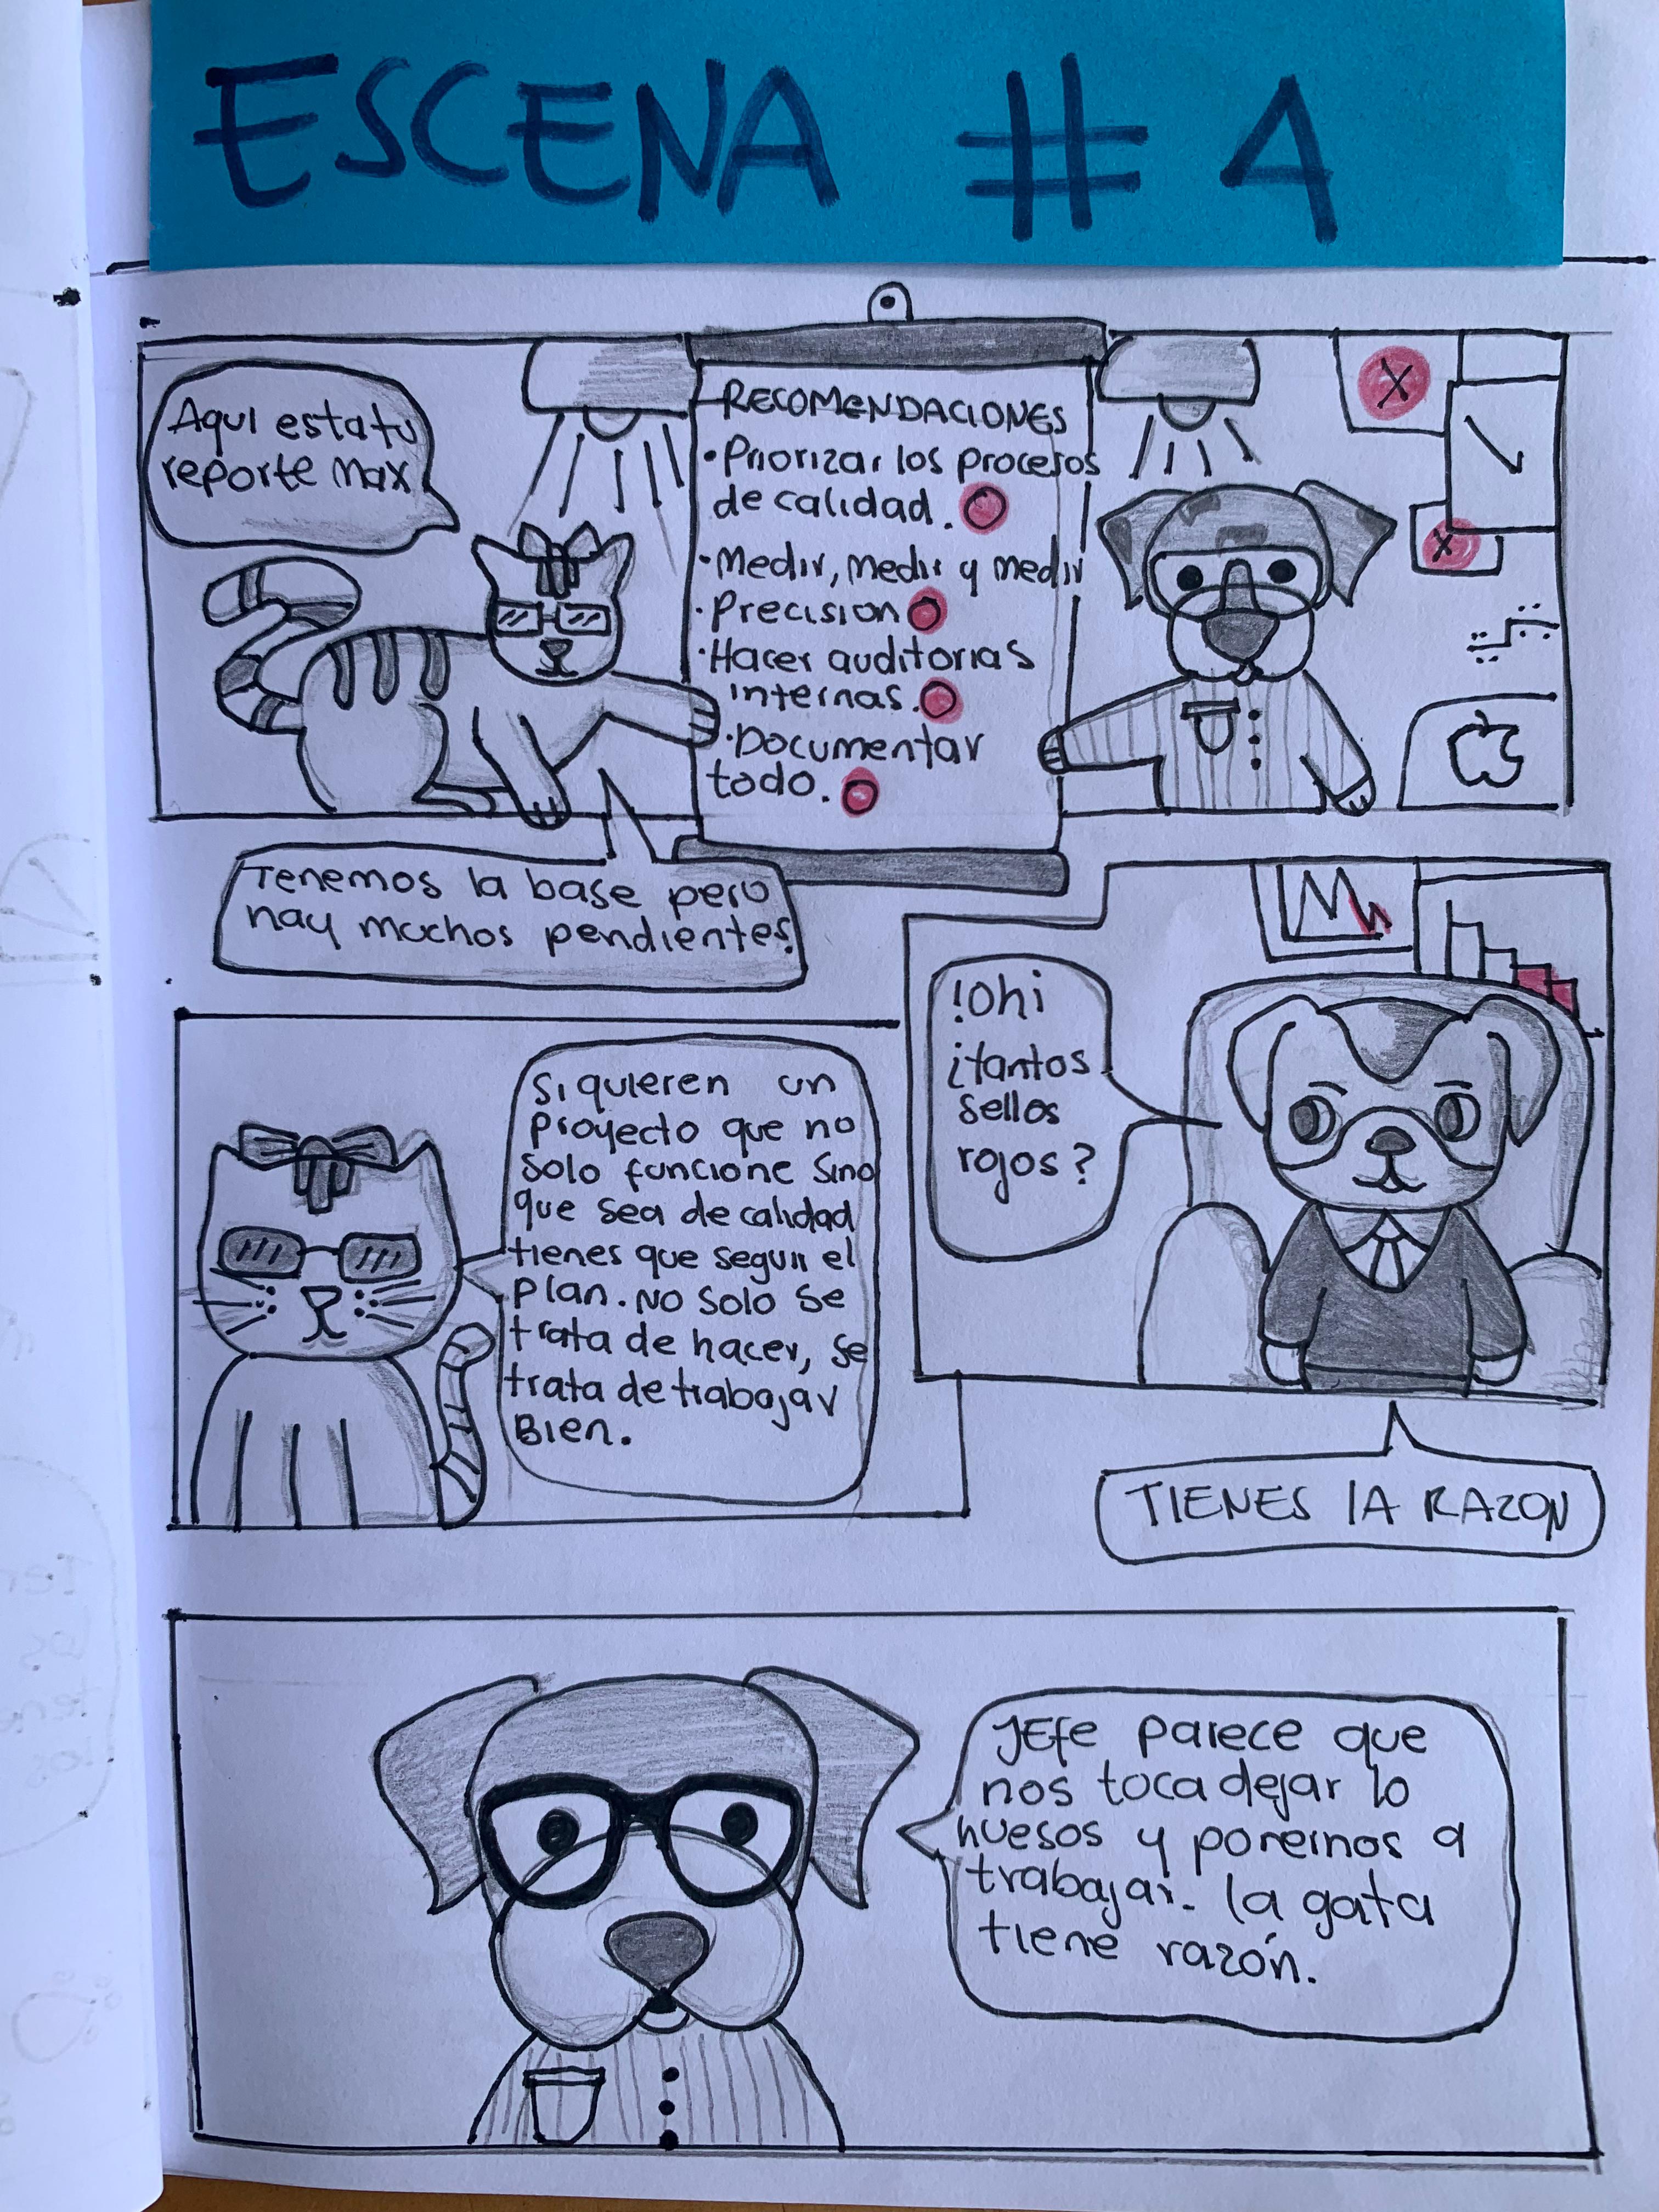 ESCENA # 4
Aqui esta tu
reporte Max
RECOMENDACIONES
• Priorizar los procesos
de calidad.
• Medir, medir y medir
• Precision
• Hacer auditorias
internas.
• Documentar
todo.
Tenemos la base pero
hay muchos pendientes.
!Ohi
¡tantos
sellos
rojos?
Si quieren un
proyecto que no
solo funcione sino
que sea de calidad
tienes que seguir el
plan. No solo se
trata de hacer, se
trata de trabajar
Bien.
TIENES lA RAZON
JEfe parece que
nos toca dejar lo
huesos y ponernos a
trabajar. la gata
tiene razón.